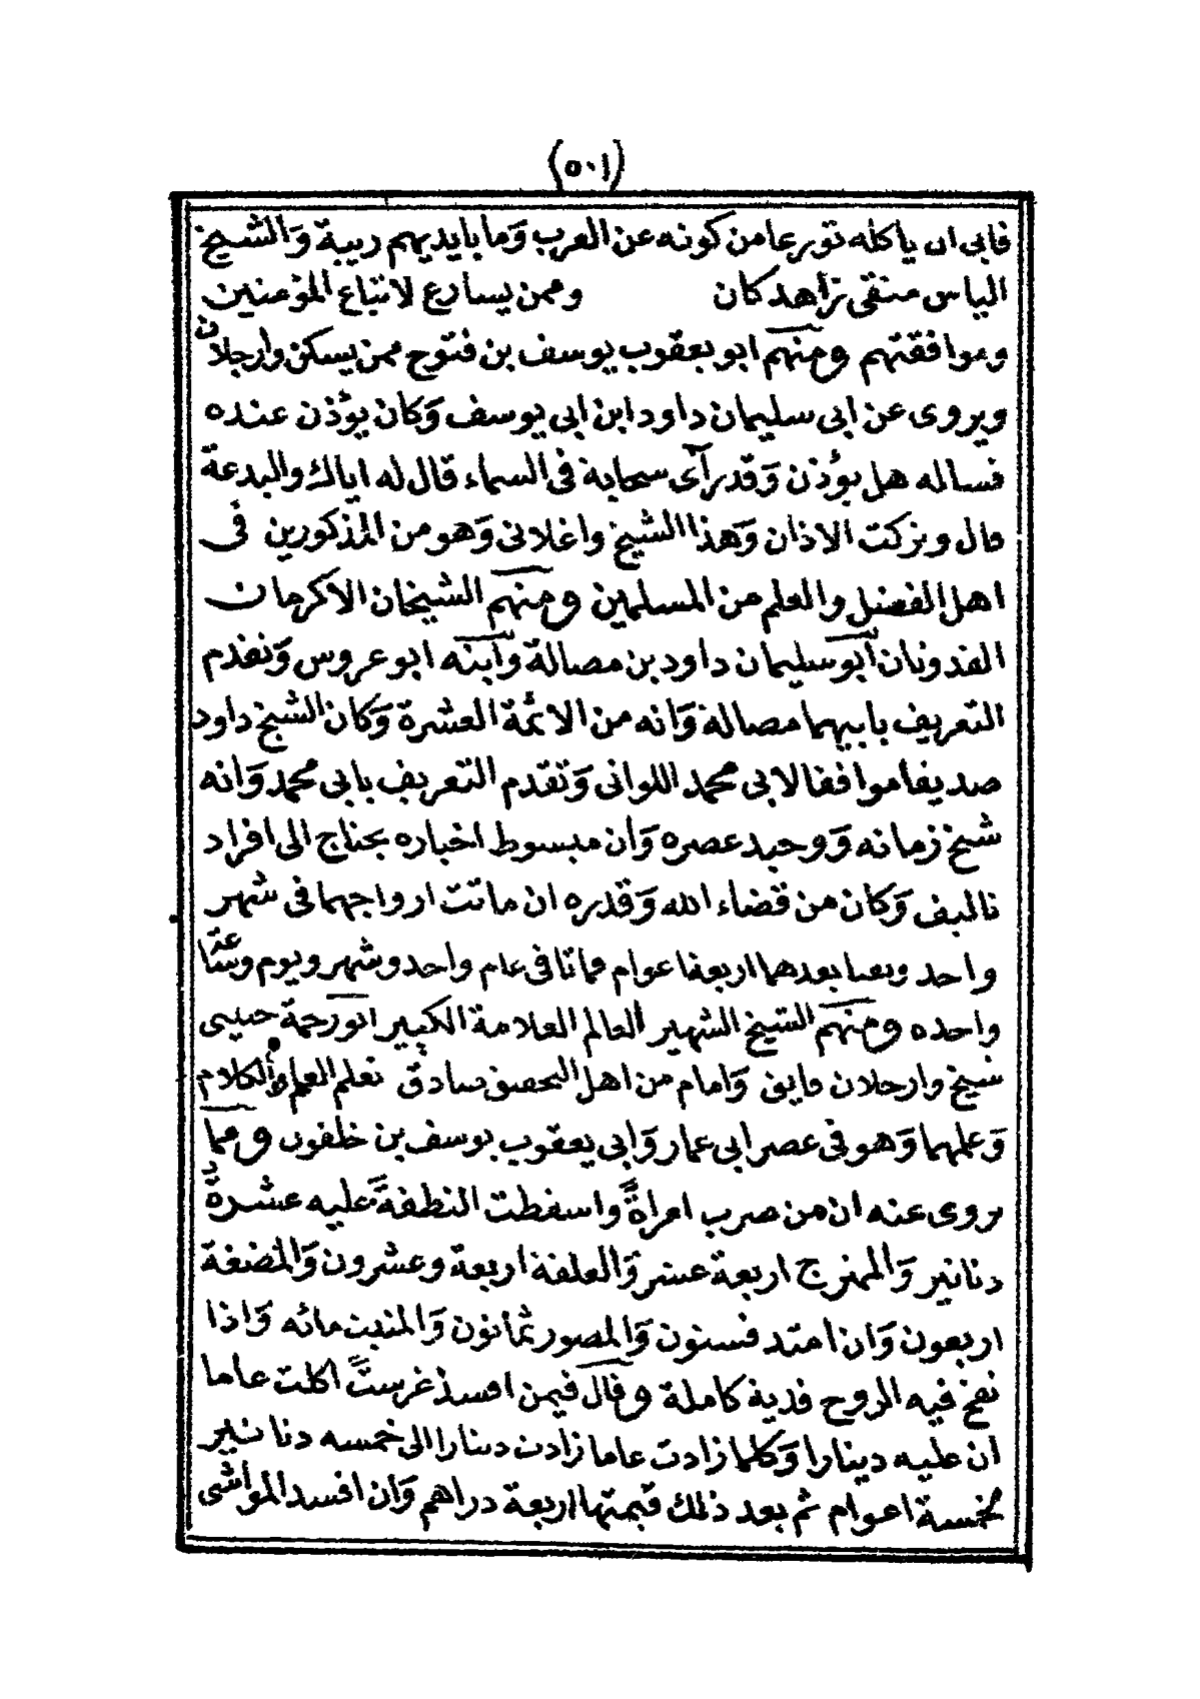 (٥٠١)
فابى ان ياكله تورعا من كونه عن العرب وَما بايديهم ريبة وَالشيخ
الياس متقى زاهد كان وممن يسارع لاتباع المؤمنين
وموافقتهم ومنهم ابو يعقوب يوسف بن فتوح ممن يسكن وارجلان
ويروى عن ابى سليمان داود ابن ابى يوسف وَكان يؤذن عنده
فساله هل يؤذن وَقد رآى سحابة فى السماء قال له اياك والبدعة
قال وتركت الاذان وَهذا الشيخ واغلانى وَهو من المذكورين فى
اهل الفضل والعلم من المسلمين ومنهم الشيخان الاكرمان
القدوتان ابو سليمان داود بن مصالة وابنه ابو عروس وَتقدم
التعريف بابيهما مصالة وَانه من الائمة العشرة وَكان الشيخ داود
صديقا موافقا لابى محمد اللوانى وَتقدم التعريف بابى محمد وَانه
شيخ زمانه وَوحيد عصره وَان مبسوط اخباره يحتاج الى افراد
تاليف وَكان من قضاء الله وَقدره ان ماتت ازواجهما فى شهر
واحد وبقيا بعدهما اربعة اعوام فماتا فى عام واحد وشهر ويوم وساعة
واحده ومنهم الشيخ الشهير العالم العلامة الكبير ابو رحمة
شيخ وارجلان وَامام من اهل التحقيق صادق تعلم العلم والكلام
وَعلمهما وَهو فى عصر ابى عمار وَابى يعقوب يوسف بن خلفون ومما
يروى عنه ان من ضرب امراةً واسقطت النطفة عليه عشرة
دنانير وَالممزج اربعة عشر وَالعلقة اربعة وعشرون وَالمضغة
اربعون وَان امتد فستون وَالمصور ثمانون وَالمنبت مائه وَاذا
نفخ فيه الروح فدية كاملة وقال فيمن افسد غرسةً اكلت عاما
ان عليه دينارا وَكلما زادت عاما زادت دينارا الى خمسه دنانير
لخمسة اعوام ثم بعد ذلك قيمتها اربعة دراهم وَان افسد المواشى